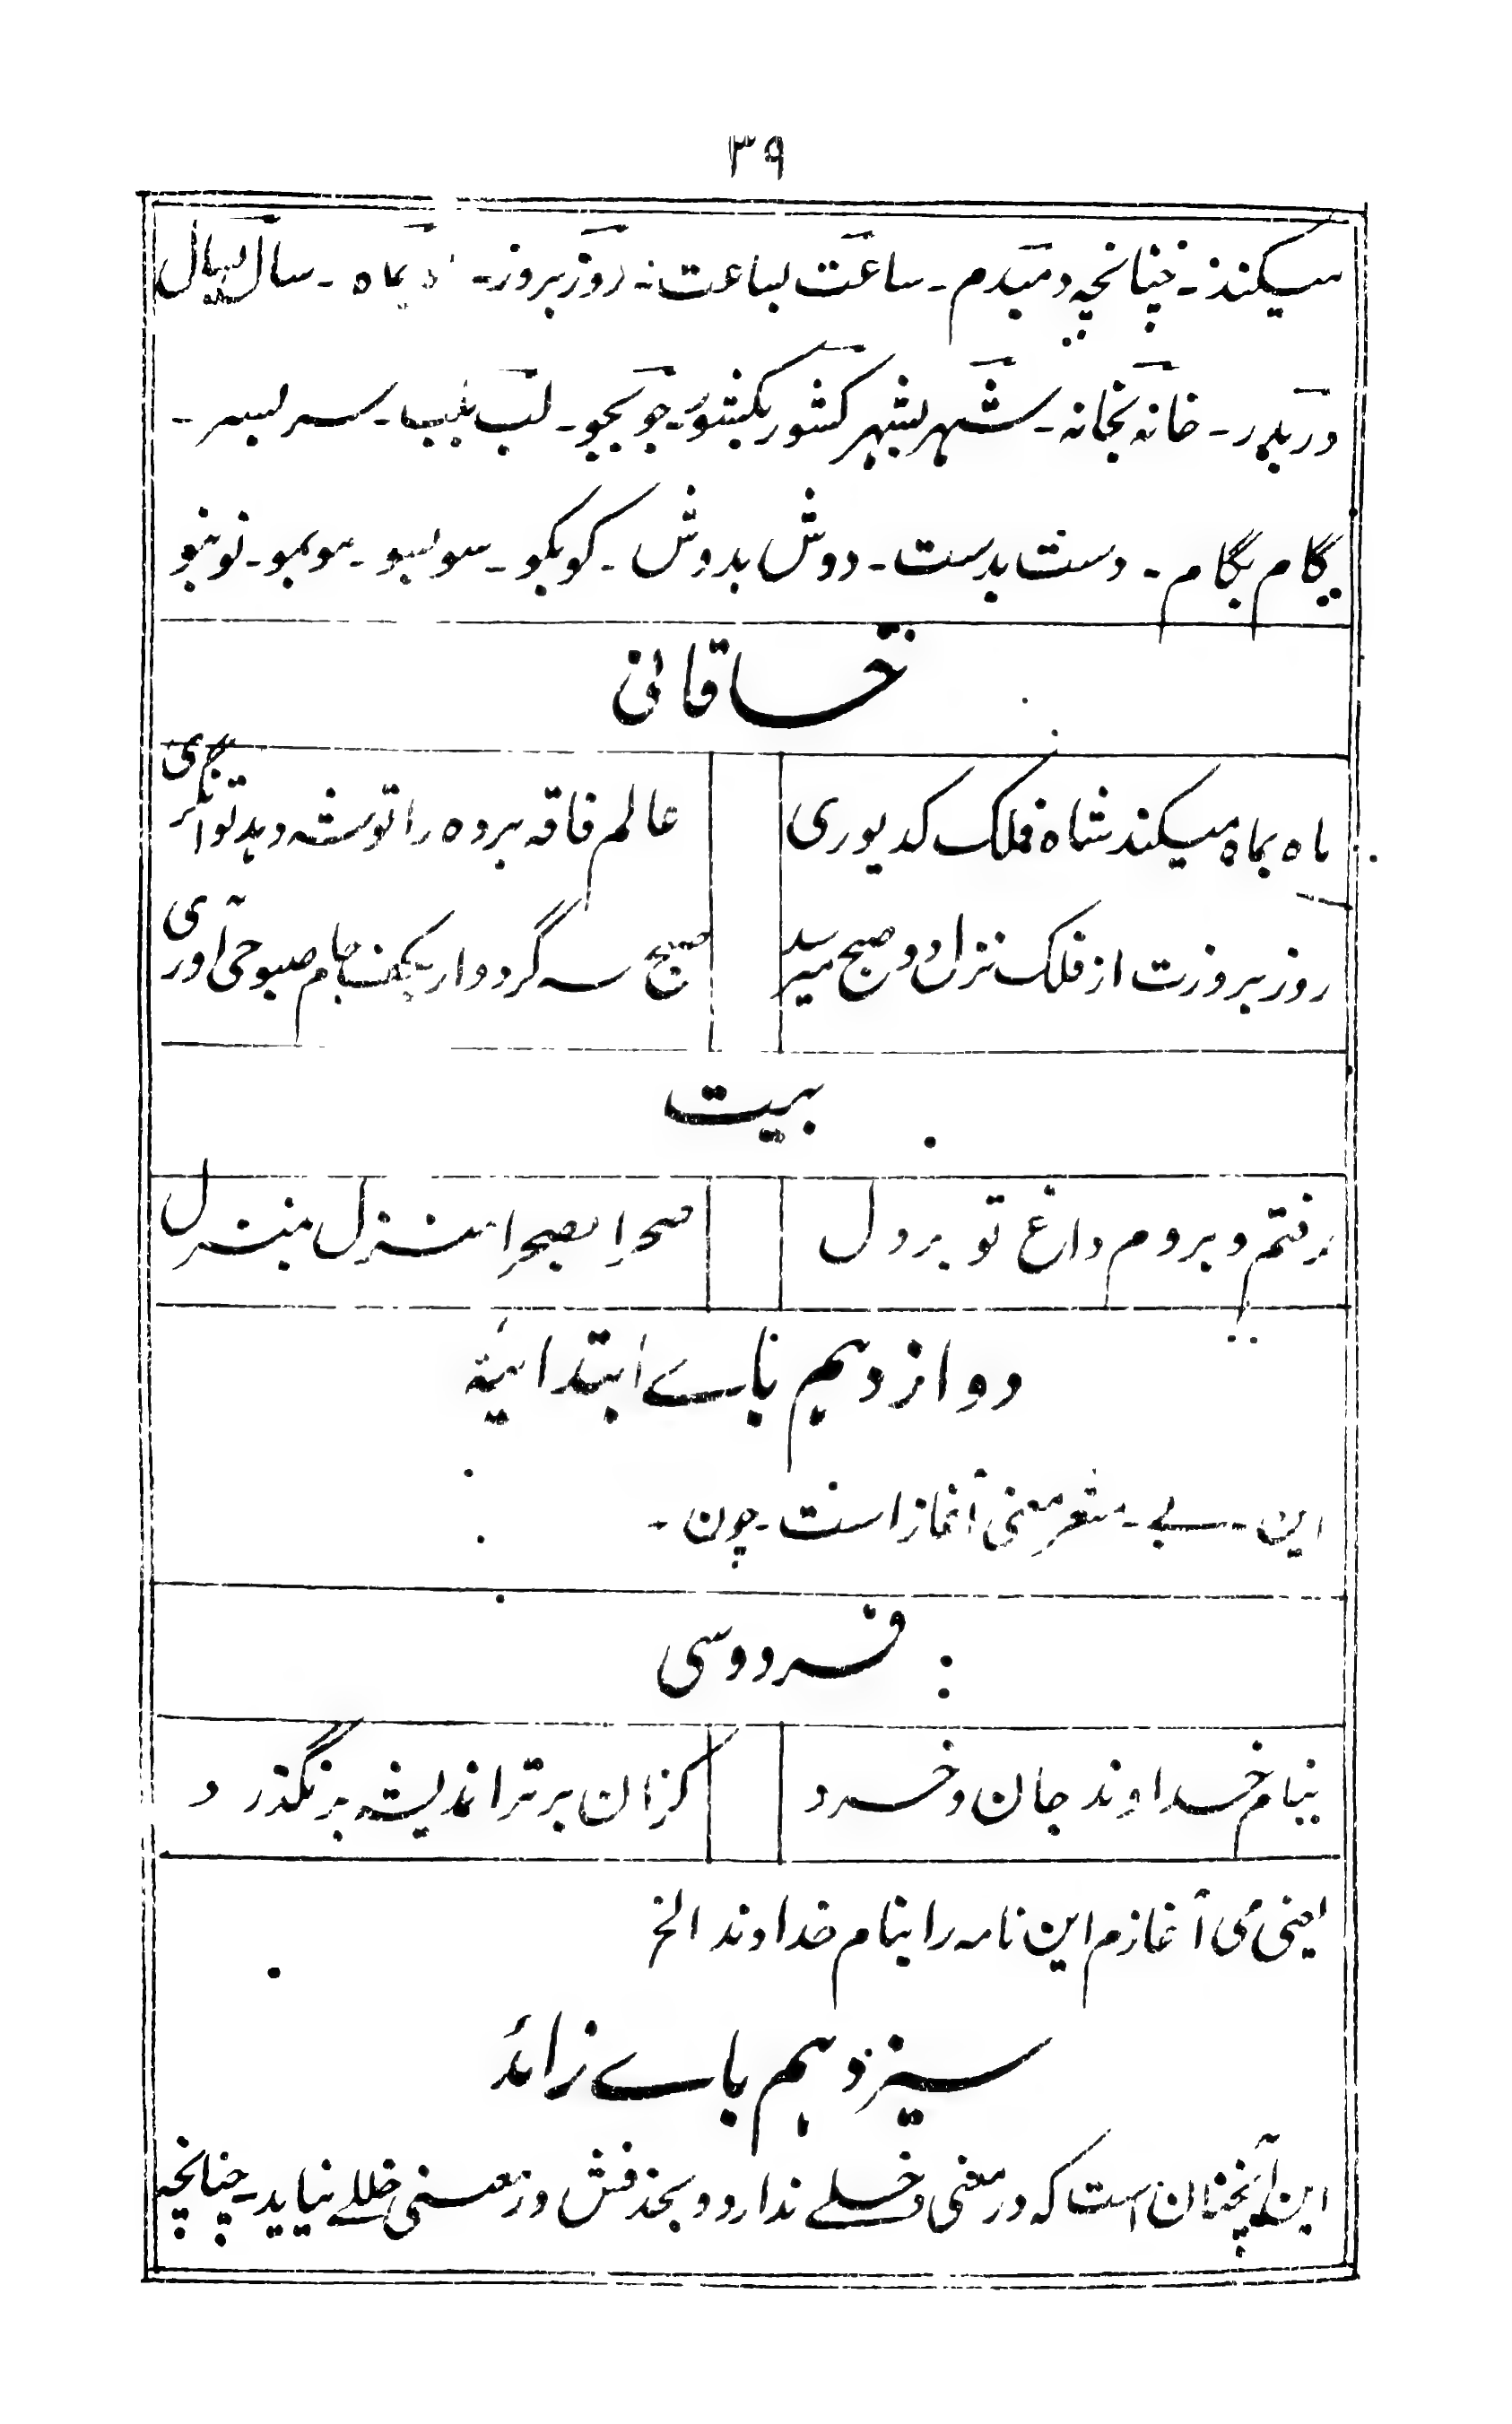 ۳۹
میکند۔ چنانچہ دمبدم۔ ساعت بساعت۔ روز بروز۔ بماه۔ سال بسال
در بدر۔ خانه بخانه۔ شہر بشہر کشور بکشور۔ جو بجو۔ لب بلب۔ سر بسر۔
گام بگام۔ دست بدست۔ دوش بدوش۔ کو بکو۔ سو بسو۔ مو بمو۔ نو بنو
خاقانی
ماه بماه میکند شاه فلک کدیوری
عالم فاقه برده را توشه دهد توانگری
روز بروزت از فلک نزل دو صبح میرسد
صبح سه گردد ار بکف جام صبوحی آوری
بیت
رفتم و بردم داغ تو بر دل
صحرا بصحرا منزل بمنزل
دوازدہم باے ابتدائیہ
این۔ بے۔ مشعر معنی آغاز است۔ چون۔
فردوسی
بنام خداوند جان و خرد
کزان برتر اندیشه برنگذرد
یعنی می آغازم این نامه را بنام خداوند الخ
سیزدہم باے زائد
این آنچنان است که در معنی دخلے ندارد و بحذفش در معنی خللے نیاید۔ چنانچہ